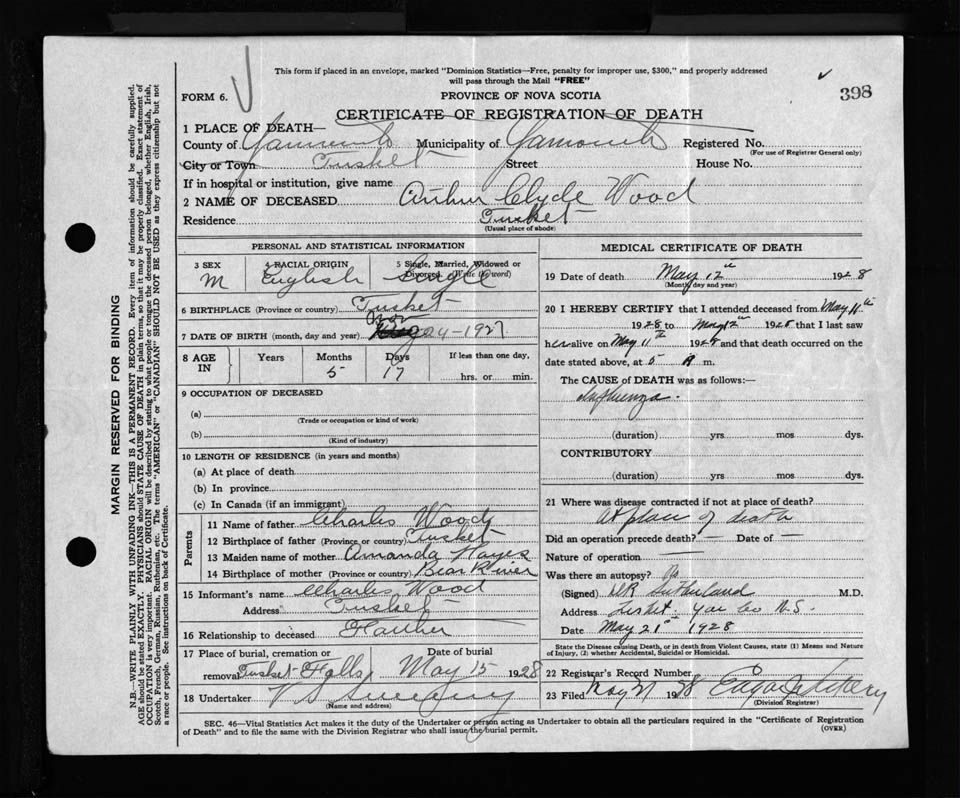 This form if placed in an envelope, marked "Dominion Statistics—Free, penalty for improper use, $300," and properly addressed
will pass through the Mail "FREE"
FORM 6.
PROVINCE OF NOVA SCOTIA
398
CERTIFICATE OF REGISTRATION OF DEATH
1 PLACE OF DEATH—
County of Yarmouth Municipality of Yarmouth Registered No.
(For use of Registrar General only)
City or Town Tusket Street House No.
If in hospital or institution, give name
2 NAME OF DECEASED Arthur Clyde Wood
Residence Tusket
(Usual place of abode)
PERSONAL AND STATISTICAL INFORMATION
3 SEX 4 RACIAL ORIGIN 5 Single, Married, Widowed or
Divorced (Write the word)
M English Single
6 BIRTHPLACE (Province or country) Tusket
7 DATE OF BIRTH (month, day and year) Nov 24-1927
8 AGE IN Years Months Days If less than one day,
5 17 hrs. or min.
9 OCCUPATION OF DECEASED
(a)
(Trade or occupation or kind of work)
(b)
(Kind of industry)
10 LENGTH OF RESIDENCE (in years and months)
(a) At place of death
(b) In province
(c) In Canada (if an immigrant)
Parents
11 Name of father Charles Wood
12 Birthplace of father (Province or country) Tusket
13 Maiden name of mother Amanda Hayes
14 Birthplace of mother (Province or country) Bear River
15 Informant's name Charles Wood
Address Tusket
16 Relationship to deceased Father
17 Place of burial, cremation or Date of burial
removal Tusket Falls May 15 1928
18 Undertaker V S Sweeny
(Name and address)
MEDICAL CERTIFICATE OF DEATH
19 Date of death May 12th 1928
(Month, day and year)
20 I HEREBY CERTIFY that I attended deceased from May 11th
1928 to May 12th 1928 that I last saw
h alive on May 11th 1928 and that death occurred on the
date stated above, at 5 A m.
The CAUSE of DEATH was as follows:—
Influenza.
(duration) yrs mos dys.
CONTRIBUTORY
(duration) yrs mos dys.
21 Where was disease contracted if not at place of death?
At place of death
Did an operation precede death? — Date of —
Nature of operation —
Was there an autopsy? No
(Signed) Sutherland M.D.
Address Tusket. Yar Co N.S.
Date May 21st 1928
State the Disease causing Death, or in death from Violent Causes, state (1) Means and Nature
of Injury, (2) whether Accidental, Suicidal or Homicidal.
22 Registrar's Record Number
23 Filed May 1928 Edgar
(Division Registrar)
SEC. 46—Vital Statistics Act makes it the duty of the Undertaker or person acting as Undertaker to obtain all the particulars required in the "Certificate of Registration
of Death" and to file the same with the Division Registrar who shall issue the burial permit.
(OVER)
MARGIN RESERVED FOR BINDING
N.B.—WRITE PLAINLY WITH UNFADING INK—THIS IS A PERMANENT RECORD. Every item of information should be carefully supplied.
AGE should be stated EXACTLY. PHYSICIANS should STATE CAUSE OF DEATH in plain terms, so that it may be properly classified. Exact statement of
OCCUPATION is very important. RACIAL ORIGIN will be described by stating to what people or tongue the deceased person belonged, whether English, Irish,
Scotch, French, German, Russian, Ruthenian, etc. The terms "AMERICAN" or "CANADIAN" SHOULD NOT BE USED as they express citizenship but not
a race or people. See instructions on back of Certificate.